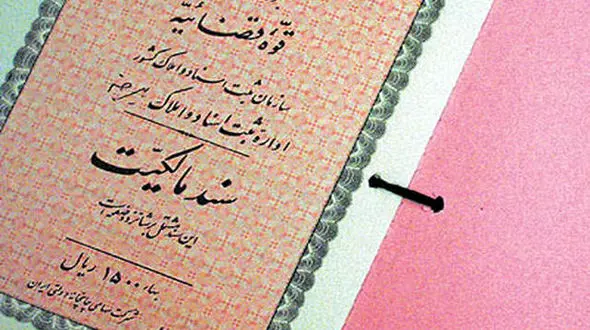 قوّهٔ قضائیّه
سازمان ثبت اسناد و املاک کشور
ادارهٔ ثبت اسناد و املاک بیرجند
سند مالکیّت
این سند مشتمل بر شانزده صفحه است
بهاء ۱۵۰۰ ریال
شرکت سهامی چاپخانه دولتی ایران